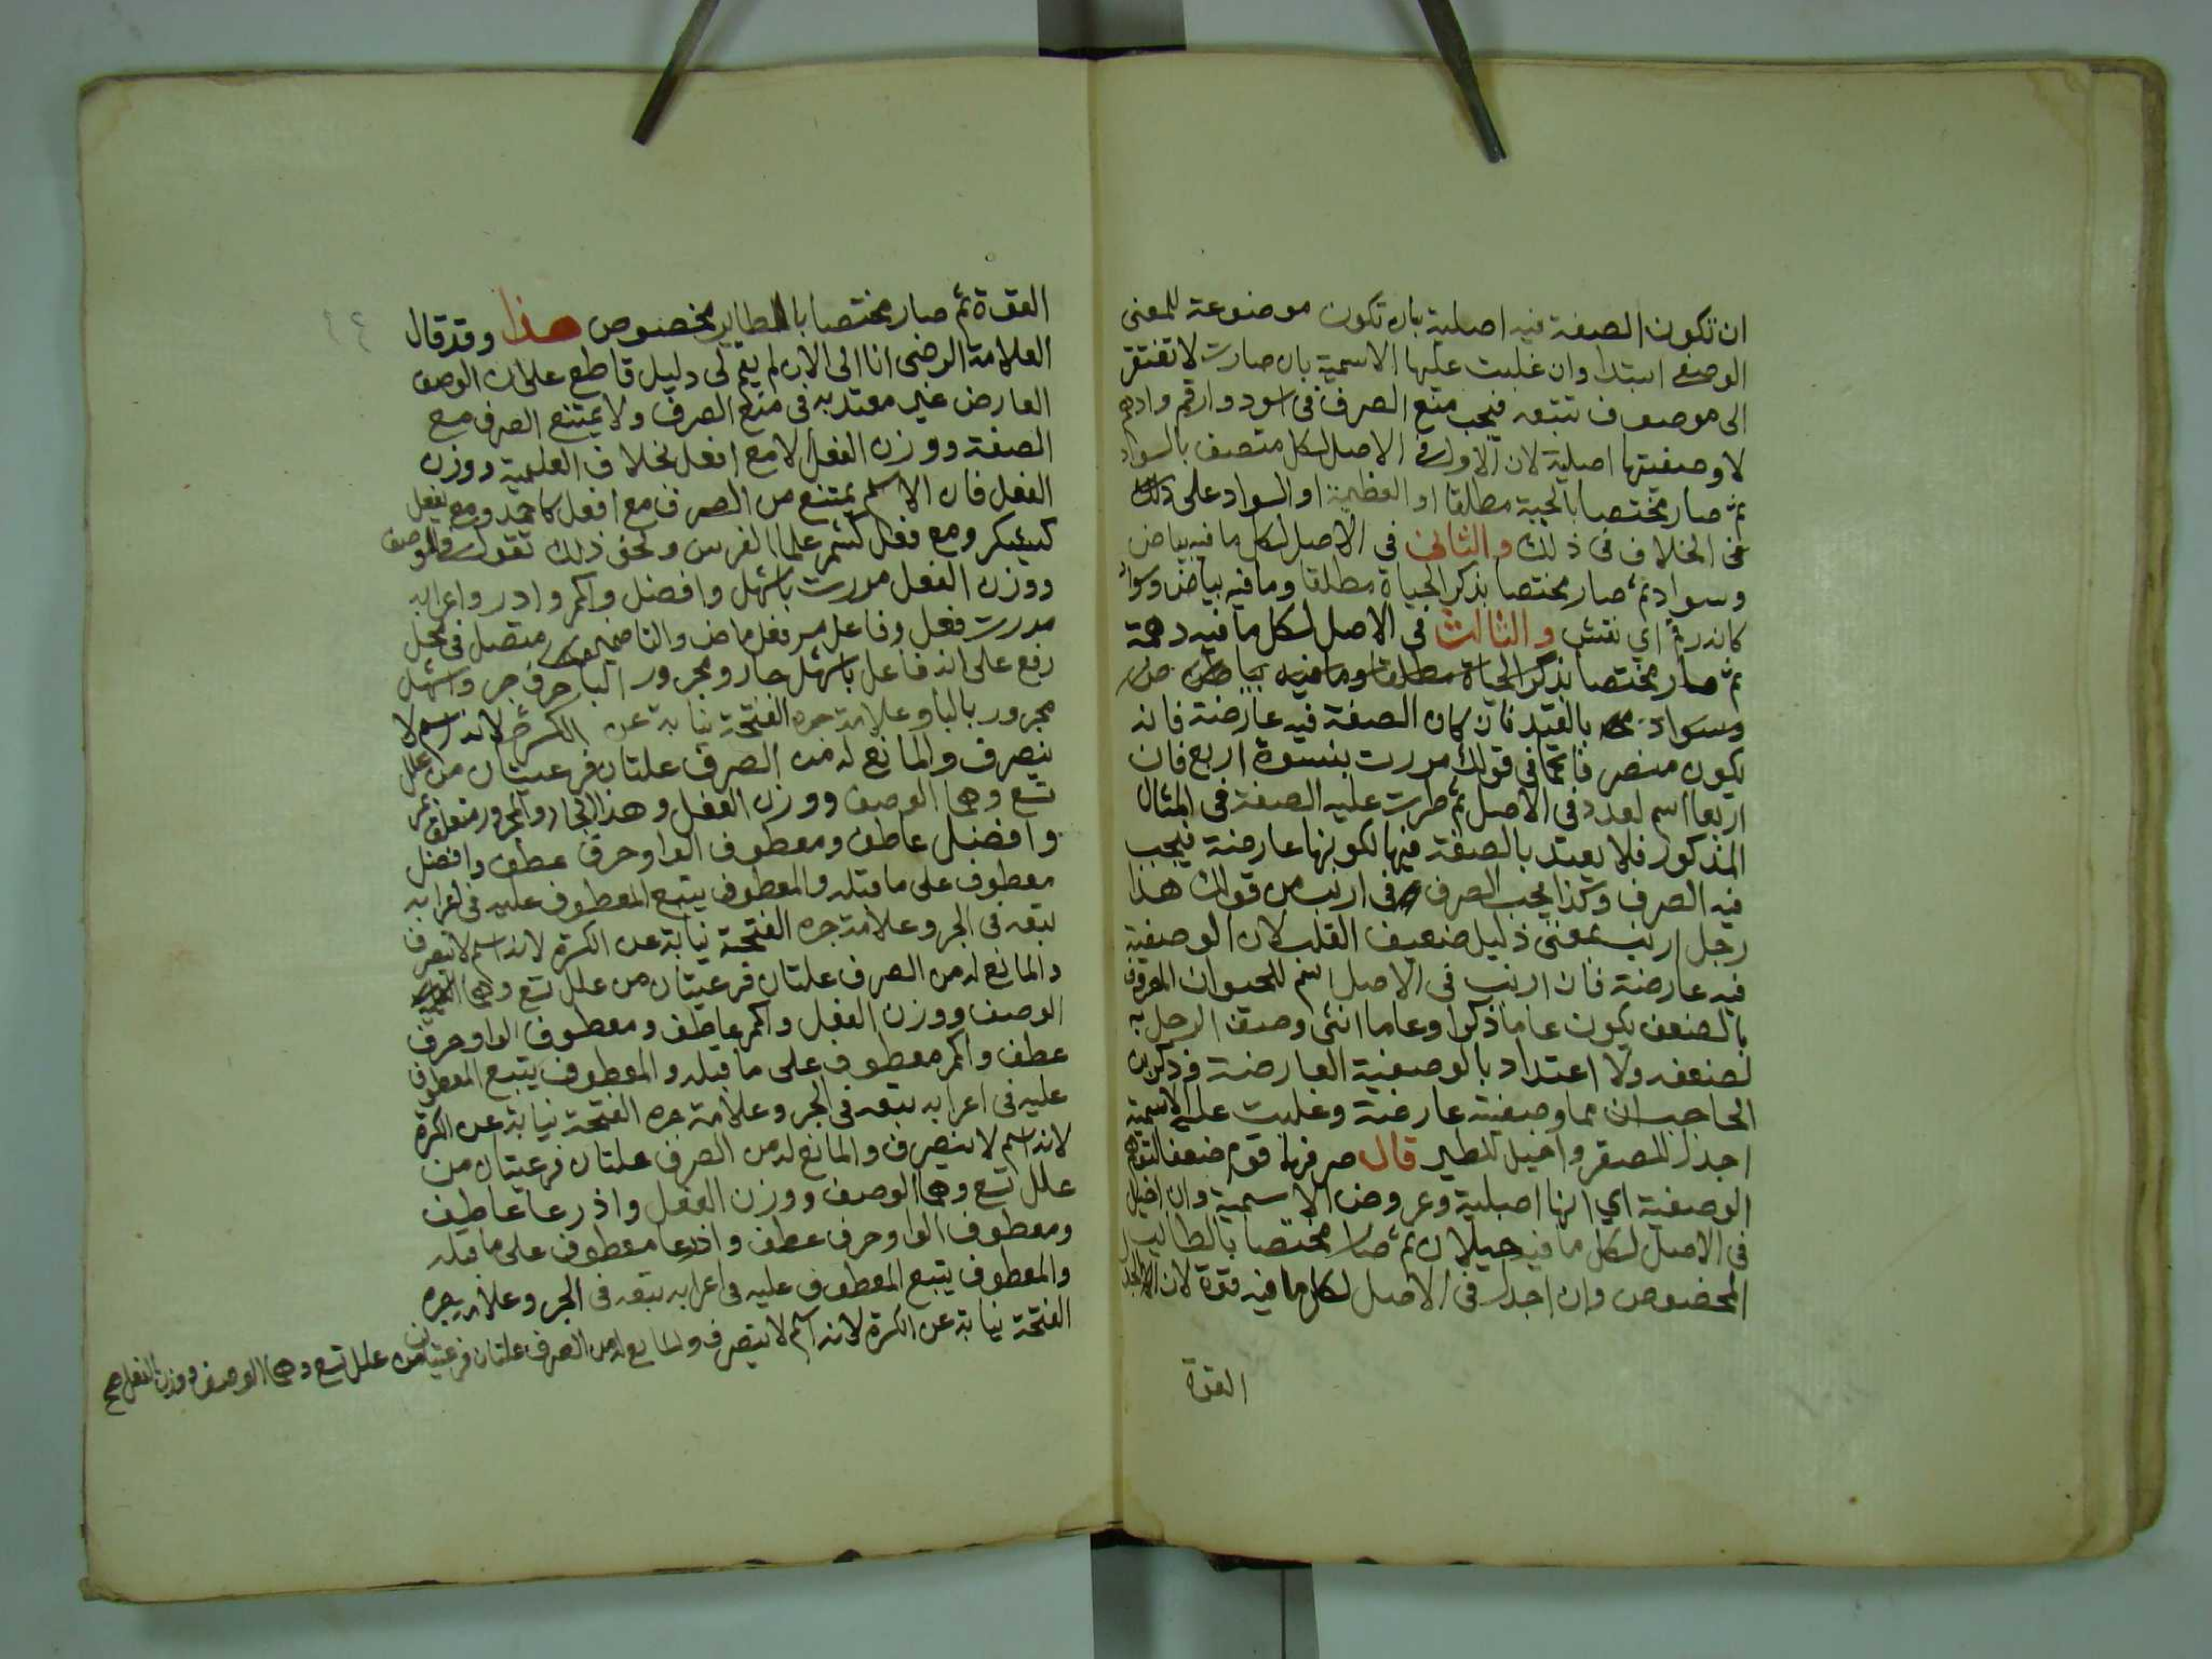 ان تكون الصفة فيه اصلية بان تكون موضوعة للمعنى
الوصفي ابتدا وان غلبت عليها الاسمية بان صارت لا تفتقر
الى موصوف تتبعه فيجب منع الصرف في اسود وارقم وادهم
لا وصفيتها اصلية لان الاول في الاصل لكل متصف بالسواد
ثم صار مختصا بالحية مطلقا او العظيمة او السواد على ذلك
في الخلاف في ذلك والثاني في الاصل لكل ما فيه بياض
وسواد ثم صار مختصا بذكر الحياة مطلقا وما فيه بياض وسواد
كانه رقم اي نقش والثالث في الاصل لكل ما فيه دهمة
ثم صار مختصا بذكر الحياة مطلقا وما فيه بياض
وسواد بالقيد فان كان الصفة فيه عارضة فانه
يكون منصرفا كما في قولك مررت بنسوة اربع فان
اربعا اسم لعدد في الاصل ثم طرت عليه الصفة في المثال
المذكور فلا يعتد بالصفة فيها لكونها عارضة فيجب
فيه الصرف وكذا يجب الصرف في ارنب من قولك هذا
رجل ارنب بمعنى ذليل ضعيف القلب لان الوصفية
فيه عارضة فان ارنب في الاصل اسم للحيوان المعروف
بالضعف يكون عاما ذكرا وعاما انثى وصف الرجل به
لضعفه ولا اعتداد بالوصفية العارضة وذكر بن
الحاجب ان مما وصفيته عارضة وغلبت عليه الاسمية
اجدل للصقر واخيل للطير قال صرفها قوم ضعفا لتوهم
الوصفية اي انها اصلية وعروض الاسمية وان اخيل
في الاصل لكل ما فيه خيلان ثم صار مختصا بالطاير
المخصوص وان اجدل في الاصل لكل ما فيه قوة لان الجدل
القوة
القوة ثم صار مختصا بالطاير مخصوص هذا وقد قال
العلامة الرضى انا الى الان لم يقم لى دليل قاطع على ان الوصف
العارض غير معتد به في منع الصرف ولا يمتنع الصرف مع
الصفة ووزن الفعل الا مع افعل بخلاف العلمية ووزن
الفعل فان الاسم يمتنع من الصرف مع افعل كاحمد ومع يفعل
كيشكر ومع فعل كشمر علما لفرس ونحو ذلك تقول في الوصف
ووزن الفعل مررت باشهل وافضل واكمر وادر واعرابه
مررت فعل وفاعل مر فعل ماض والتا ضمير متصل في محل
رفع على انه فاعل باشهل جار ومجرور البا حرف جر واشهل
مجرور بالبا وعلامة جره الفتحة نيابة عن الكسرة لانه اسم لا
ينصرف والمانع له من الصرف علتان فرعيتان من علل
تسع وهما الوصف ووزن الفعل وهذا الجار والمجرور متعلق بمر
وافضل عاطف ومعطوف الواو حرف عطف وافضل
معطوف على ما قبله والمعطوف يتبع المعطوف عليه في اعرابه
تبعه في الجر وعلامة جره الفتحة نيابة عن الكسرة لانه اسم لا ينصرف
والمانع له من الصرف علتان فرعيتان من علل تسع وهما
الوصف ووزن الفعل واكمر عاطف ومعطوف الواو حرف
عطف واكمر معطوف على ما قبله والمعطوف يتبع المعطوف
عليه في اعرابه تبعه في الجر وعلامة جره الفتحة نيابة عن الكسرة
لانه اسم لا ينصرف والمانع له من الصرف علتان فرعيتان من
علل تسع وهما الوصف ووزن الفعل واذرعا عاطف
ومعطوف الواو حرف عطف واذرعا معطوف على ما قبله
والمعطوف يتبع المعطوف عليه في اعرابه تبعه في الجر وعلامة جره
الفتحة نيابة عن الكسرة لانه اسم لا ينصرف والمانع له من الصرف علتان فرعيتان من علل تسع وهما الوصف ووزن الفعل صح